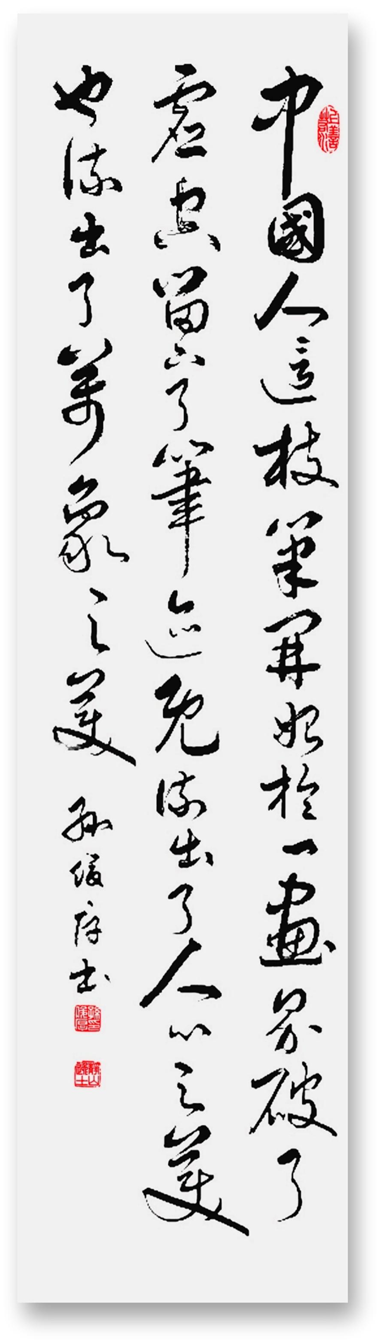 中國人這枝筆開始於一畫界破了
虛空留下了筆迹既流出了人心之美
也流出了萬象之美
孫俊書